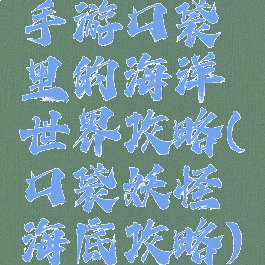 手游口袋
里的海洋
世界攻略(
口袋妖怪
海底攻略)